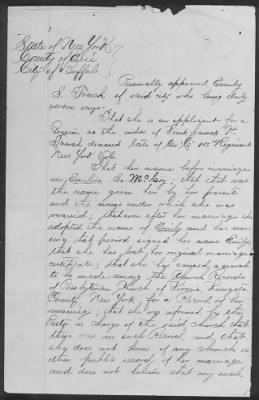 State of New York
County of Erie
City of Buffalo
Personally appeared Emily
S. French of said city who being duly
sworn says:
That she is an applicant for a
Pension as the widow of Lieut James H.
French deceased late of Co. 104 Regiment
New York Vols.
That her name before marriage
was Emeline S. McKay; that that was
the name given her by her parents
and the name under which she was
married; that soon after her marriage she
adopted the name of Emily and has ever
since that period signed her name Emily;
that she has lost her original marriage
certificate; that she has caused a search
to be made among the Church Records
of Presbyterian Church of Livonia Livingston
County, New York, for a Record of her
marriage; that she was informed by the
Party in charge of the said church that
there was no such Record, and that
she does not know of any church or
other public record of her marriage
and does not believe that any such